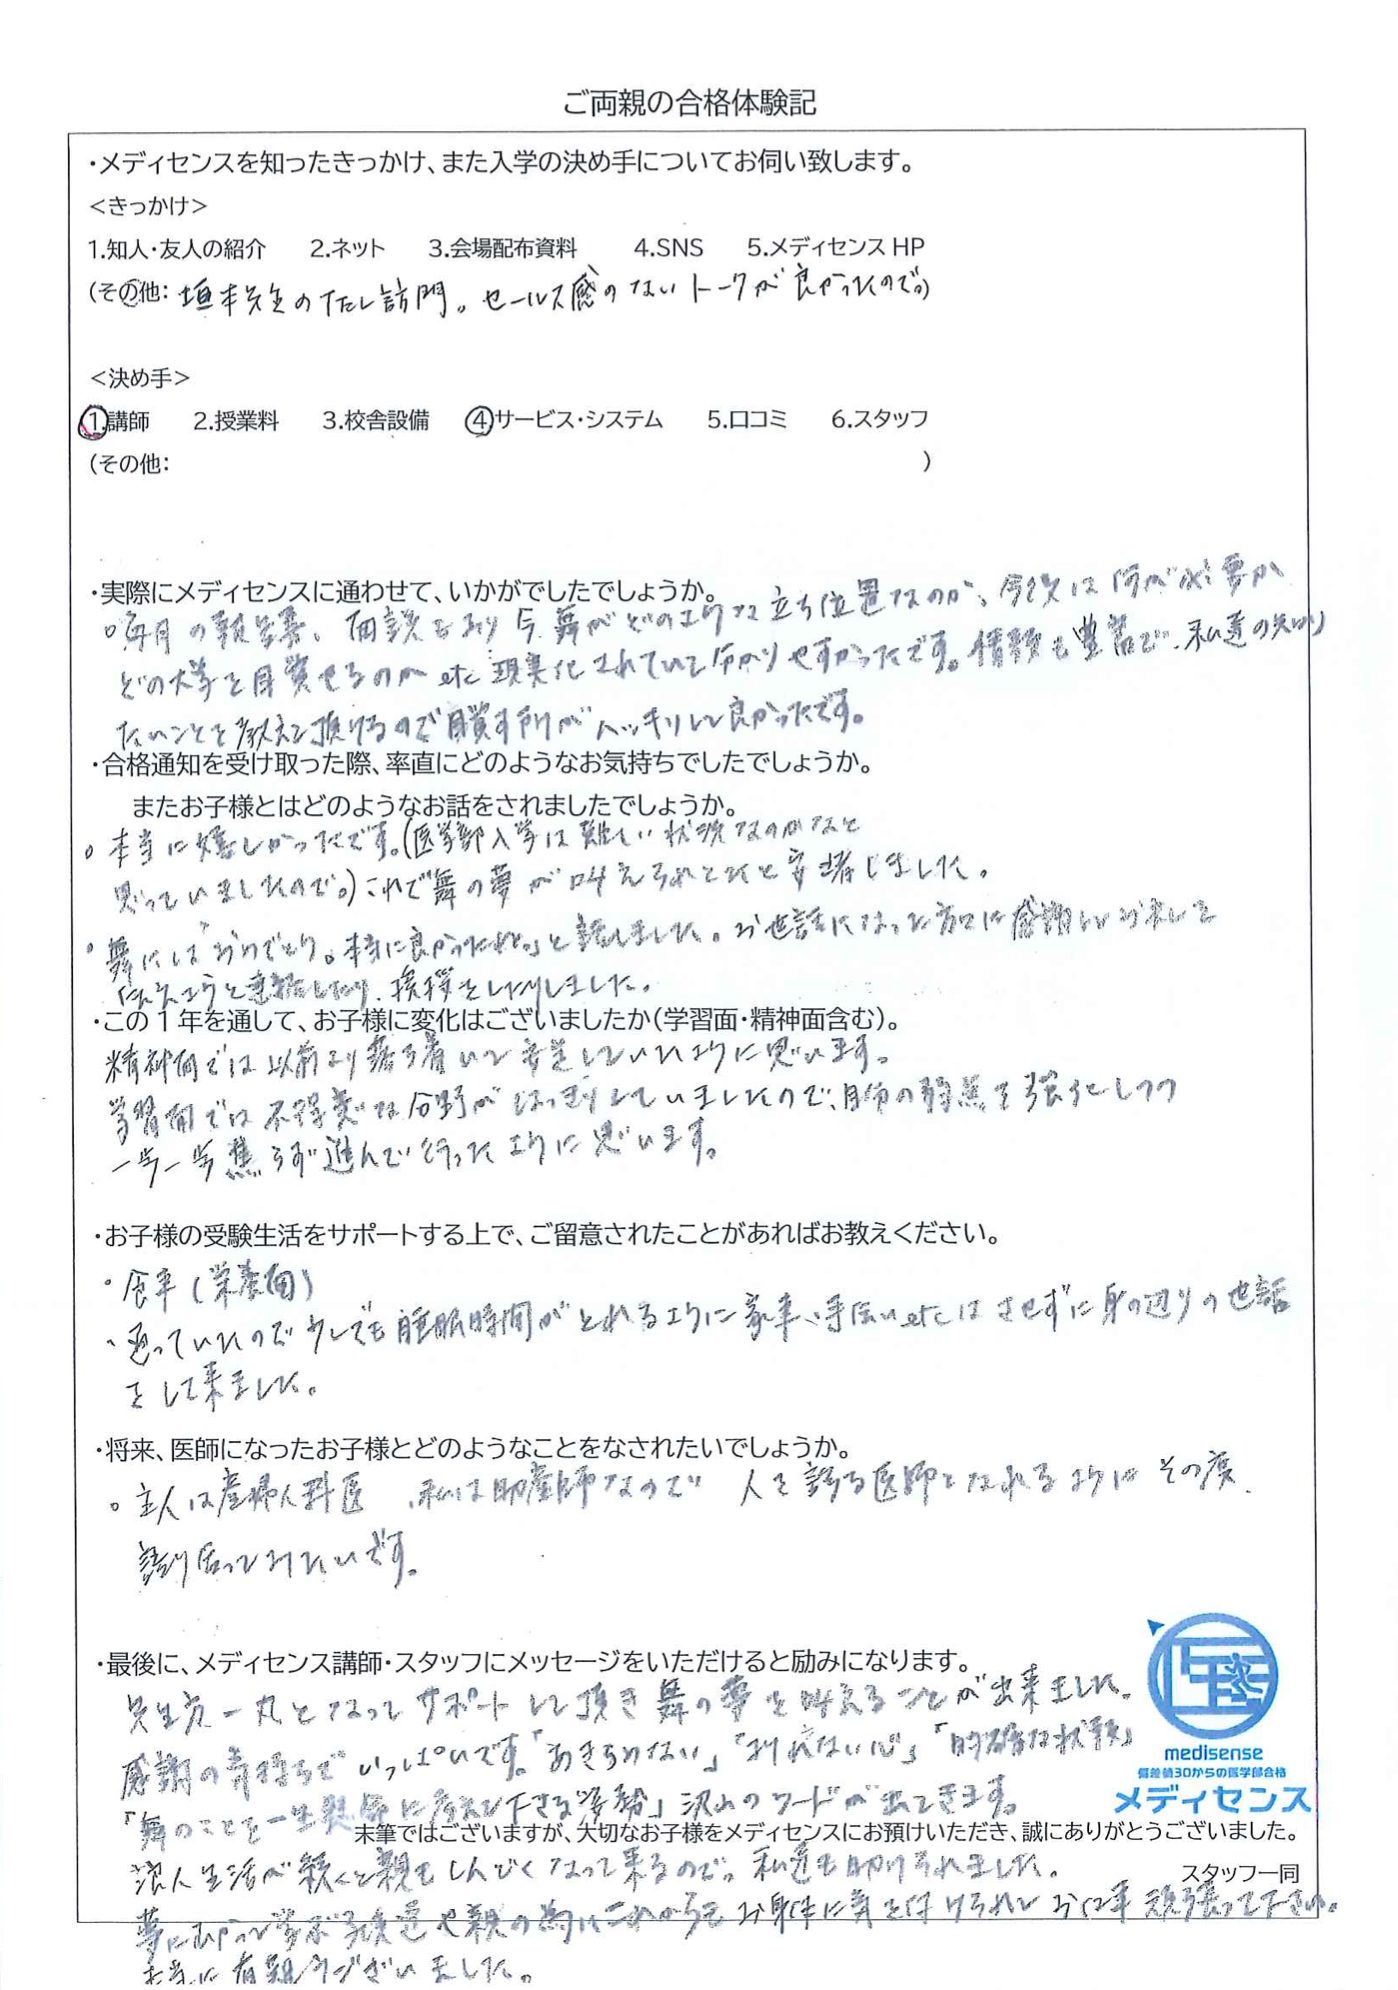 ご両親の合格体験記
・メディセンスを知ったきっかけ、また入学の決め手についてお伺い致します。
＜きっかけ＞
1.知人・友人の紹介 2.ネット 3.会場配布資料 4.SNS 5.メディセンスHP
(その他: 垣本先生の 訪問。セールス感のないトークが良かったので。)
＜決め手＞
1.講師 2.授業料 3.校舎設備 4.サービス・システム 5.口コミ 6.スタッフ
(その他: )
・実際にメディセンスに通わせて、いかがでしたでしょうか。
○毎月の報告書、面談をより今舞がどのような立ち位置なのか、今後は何が必要か
どの大学を目賞せるのか etc 現実化されていて分かりやすかったです。情報も豊富で、私達の知り
たいことを教えて頂けるので目賞す所がハッキリして良かったです。
・合格通知を受け取った際、率直にどのようなお気持ちでしたでしょうか。
またお子様とはどのようなお話をされましたでしょうか。
○本当に嬉しかったです。(医学部入学は難しい状況なのかなと
思っていましたので。)これで舞の夢が叶えられたと安堵しました。
○舞には「おめでとう。本当に良かったね。」と話しました。お世話になった方々に感謝しお礼を
伝えようと連絡したり、挨拶をしたりしました。
・この1年を通して、お子様に変化はございましたか(学習面・精神面含む)。
精神面では以前より落ち着いて安定していたように思います。
学習面では不得意な分野がはっきりしていましたので、自分の弱点を強化しつつ
一歩一歩焦らず進んで行ったように思います。
・お子様の受験生活をサポートする上で、ご留意されたことがあればお教えください。
・食事(栄養面)
・通っていたので少しでも睡眠時間がとれるように家事、手伝いetcはさせずに身の辺りの世話
をして来ました。
・将来、医師になったお子様とどのようなことをなされたいでしょうか。
○主人は産婦人科医、私は助産師なので 人を診る医師となれるように その度、
語り合ってみたいです。
・最後に、メディセンス講師・スタッフにメッセージをいただけると励みになります。
先生方一丸となってサポートして頂き舞の夢を叶えることが出来ました。
感謝の気持ちでいっぱいです。「あきらめない」「より 心」「的確な状報」
「舞のことを一生懸命に考えて下さる姿勢」沢山のワードが出てきます。
末筆ではございますが、大切なお子様をメディセンスにお預けいただき、誠にありがとうございました。
浪人生活が続くと親もしんどくなって来るので。私達も助けられました。
スタッフ一同
夢に向かって学ぶ子供達や親の為にこれからもお身体に気を付けられてお仕事頑張って下さい。
本当に有難うございました。
medisense
偏差値30からの医学部合格
メディセンス